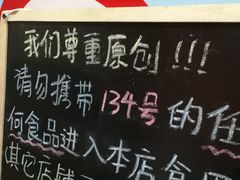 我们尊重原创!!!
请勿携带134号的任
何食品进入本店食用
其它店铺